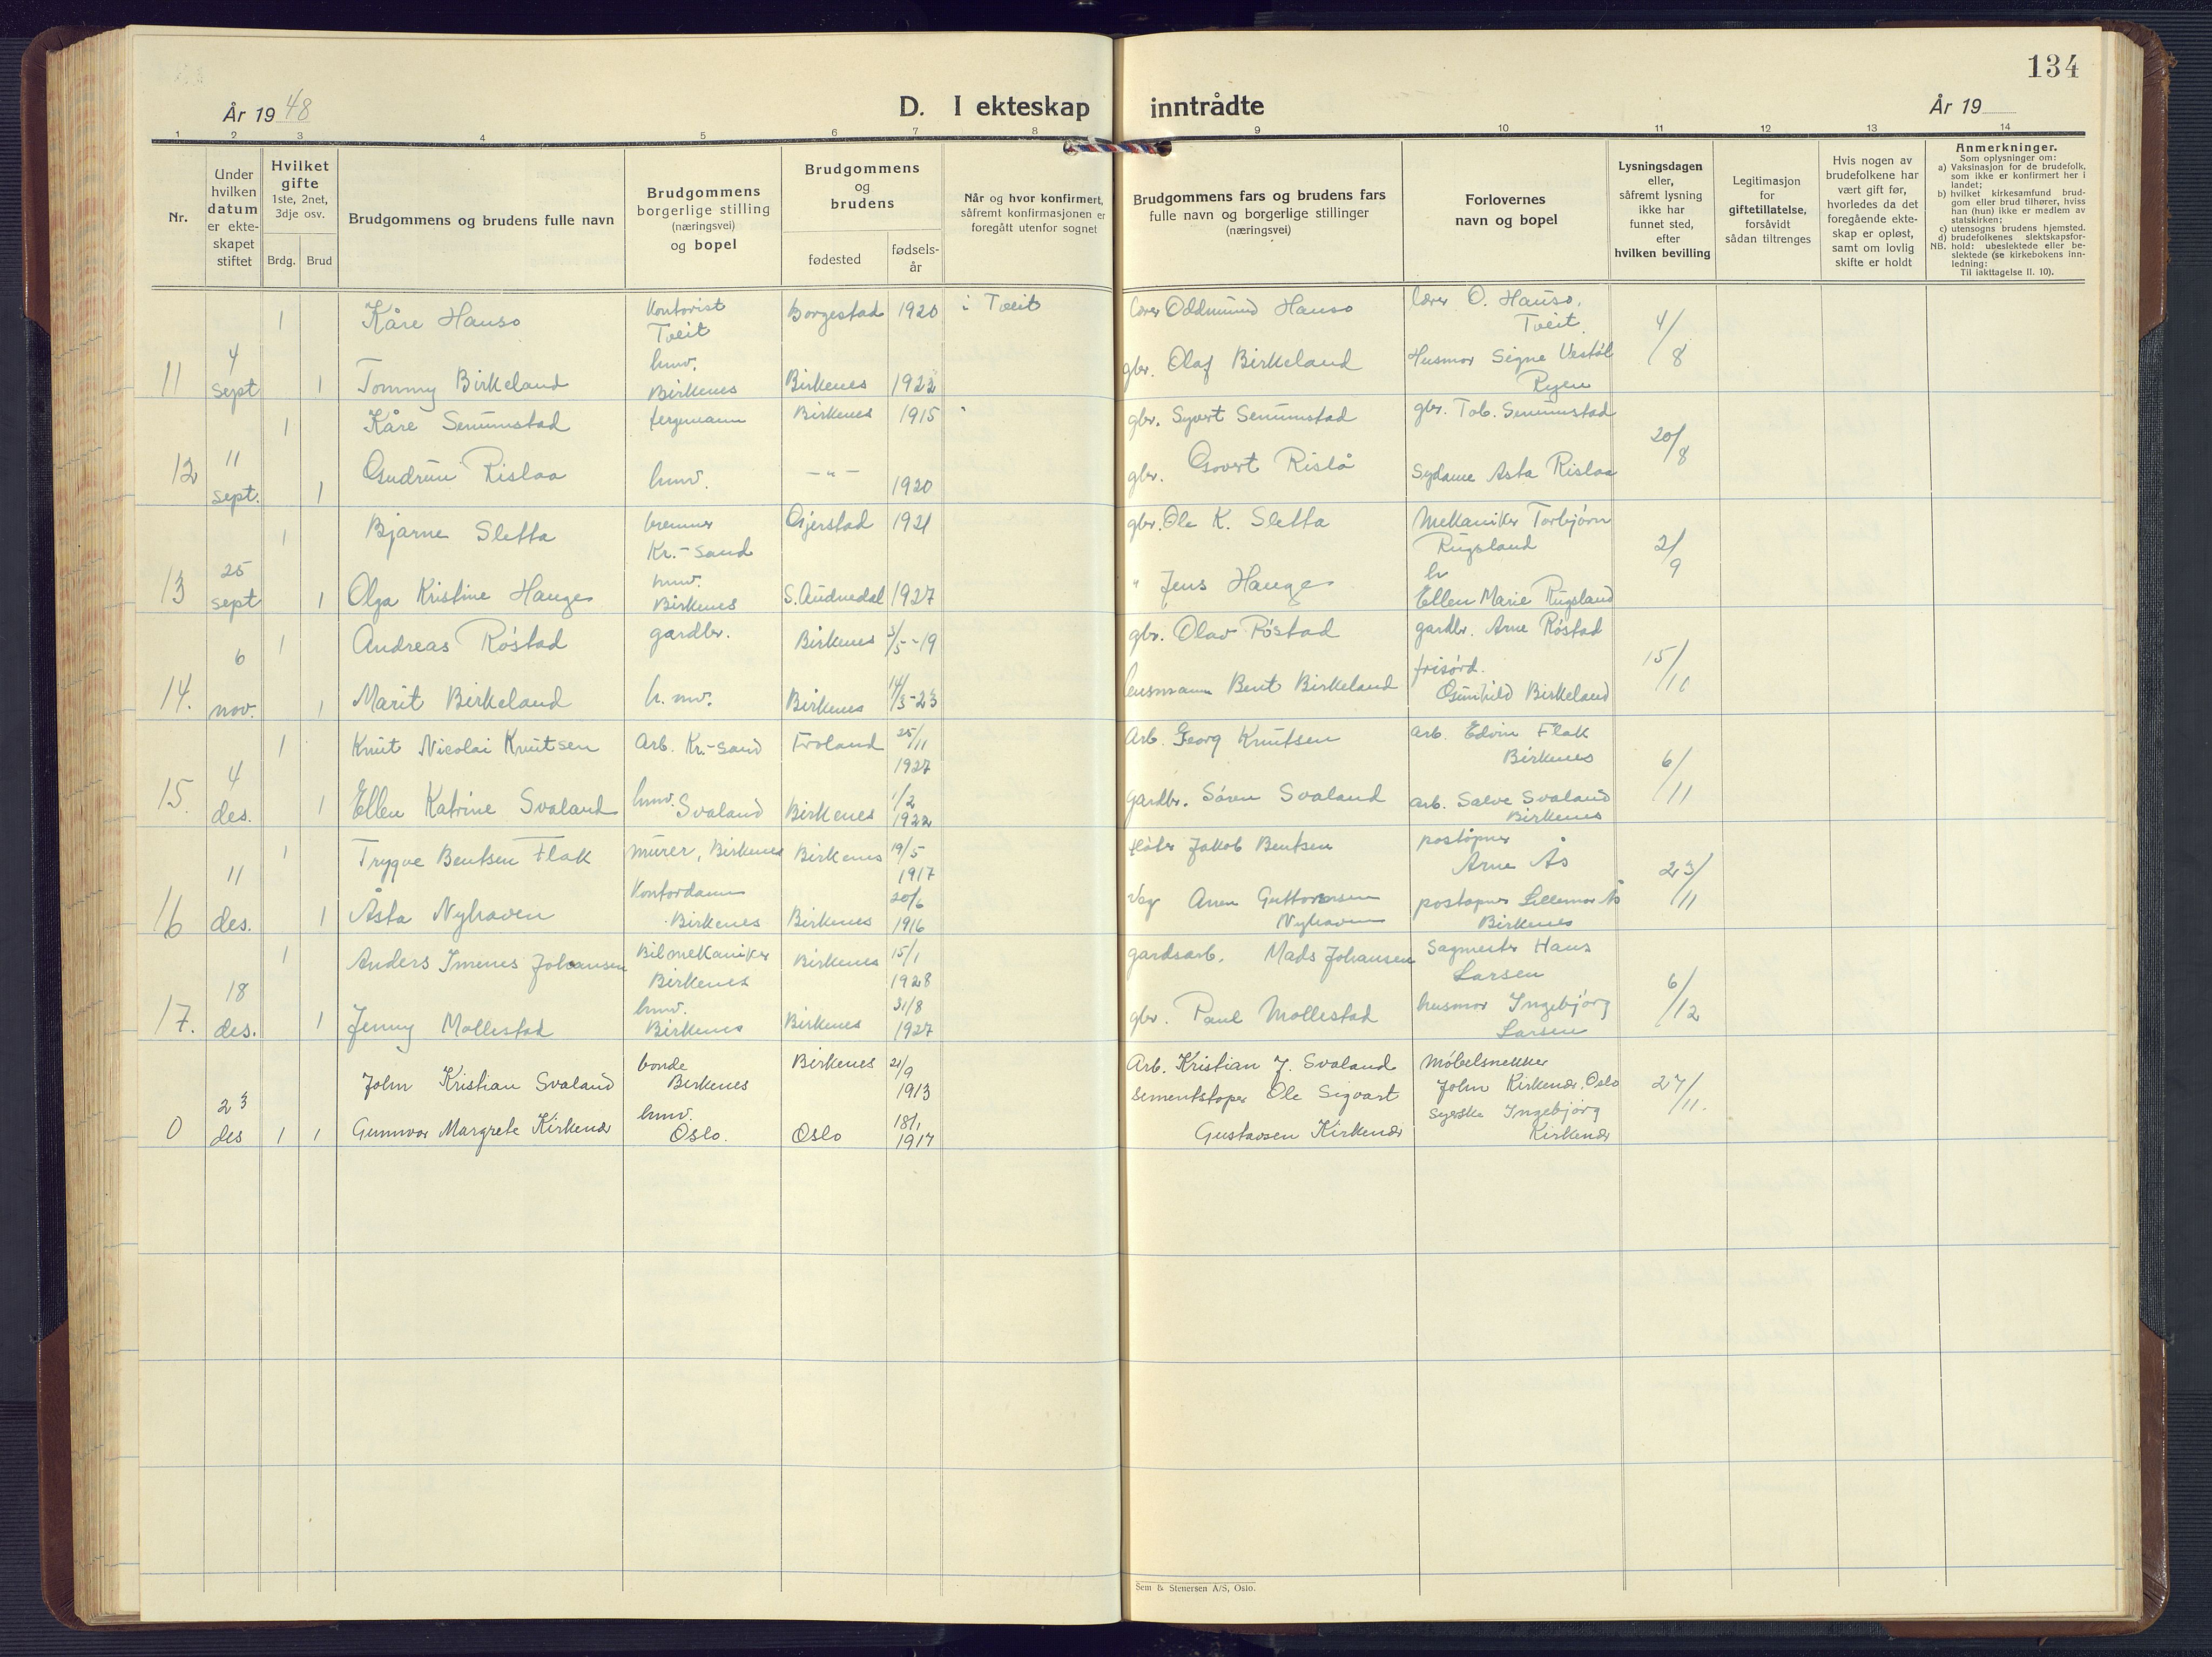 134
År 1948
D. I ekteskap inntrådte
År 19
1 2 3 4 5 6 7 8 9 10 11 12 13 14
Nr.
Under hvilken datum er ekteskapet stiftet
Hvilket gifte 1ste, 2net, 3dje osv.
Brdg. Brud
Brudgommens og brudens fulle navn
Brudgommens borgerlige stilling (næringsvei) og bopel
Brudgommens og brudens
fødested
fødselsår
Når og hvor konfirmert, såfremt konfirmasjonen er foregått utenfor sognet
Brudgommens fars og brudens fars fulle navn og borgerlige stillinger (næringsvei)
Forlovernes navn og bopel
Lysningsdagen eller, såfremt lysning ikke har funnet sted, efter hvilken bevilling
Legitimasjon for giftetillatelse, forsåvidt sådan tiltrenges
Hvis nogen av brudefolkene har vært gift før, hvorledes da det foregående ekteskap er opløst, samt om lovlig skifte er holdt
Anmerkninger.
Som oplysninger om:
a) Vaksinasjon for de brudefolk, som ikke er konfirmert her i landet;
b) hvilket kirkesamfund brudgom eller brud tilhører, hviss han (hun) ikke er medlem av statskirken;
c) utensogns brudens hjemsted.
d) brudefolkenes slektskapsforhold: ubeslektede eller beslektede (se kirkebokens innledning:
NB. Til iakttagelse II. 10).
1 Kåre Hauso Kontorist Tveit Borgestad 1920 i Tveit lærer Oddmund Hauso lærer O. Hauso, Tveit. 4/8
11 4 sept 1 Tommy Birkeland hmv. Birkenes Birkenes 1922 gbr. Olaf Birkeland Husmor Signe Vestøl Ryen
1 Kåre Senumstad fergemann Birkenes 1915 gbr. Syvert Senumstad gbr. Tob. Senumstad 20/8
12 11 sept. 1 Gudrun Rislaa hmv. -"- 1920 gbr. Govert Rislå Sydame Asta Rislaa
1 Bjarne Sletta Kr.-sand Gjerstad 1921 gbr. Ole K. Sletta Mekaniker Torbjørn Rugsland 2/9
13 25 sept 1 Olga Kristine Hauge hmv. Birkenes S. Audnedal 1927 " Jens Hauge Ellen Marie Rugsland
1 Andreas Røstad gardbr. Birkenes 3/5-19 gbr. Olav Røstad gardbr. Arne Røstad 15/10
14. 6 nov. 1 Marit Birkeland h. mv. Birkenes 14/3-23 lensmann Bent Birkeland frisørd. Gunhild Birkeland
1 Knut Nicolai Knutsen Arb. Kr.-sand Froland 25/11 1927 Arb. Georg Knutsen arb. Edvin Flak Birkenes 6/11
15. 4 des. 1 Ellen Katrine Svaland hmv. Svaland Birkenes 1/2 1922 gardbr. Søren Svaland arb. Salve Svaland Birkenes
1 Trygve Bentsen Flak murer, Birkenes Birkenes 19/5 1917 Jakob Bentsen poståpner Arne Ås 23/11
16 11 des. 1 Åsta Nyhaven Kontordame Birkenes Birkenes 20/6 1916 Guttormsen Nyhaven poståpner Lillemor Ås Birkenes
1 Anders Imenes Johansen Bilmekaniker Birkenes Birkenes 15/1 1928 gardsarb. Mads Johansen Sagmester Hans Larsen 6/12
17. 18 des. 1 Jenny Mollestad hmv. Birkenes Birkenes 31/8 1927 gbr. Paul Mollestad husmor Ingebjørg Larsen
John Kristian Svaland bonde Birkenes Birkenes 21/9 1913 Arb. Kristian J. Svaland Møbelsnekker John Kirkenær, Oslo 27/11.
0 23 des 1 1 Gunnvor Margrete Kirkenær hmv. Oslo. Oslo 18/1 1917 sementstøper Ole Sigvart Gustavsen Kirkenær syerske Ingebjørg Kirkenær
Sem & Stenersen A/S, Oslo.